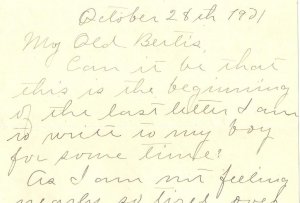 October 28th 1921
My Old Bertis.
Can it be that
this is the beginning
of the last letter I am
to write to my boy
for some time?
As I am not feeling
nearly so tired over